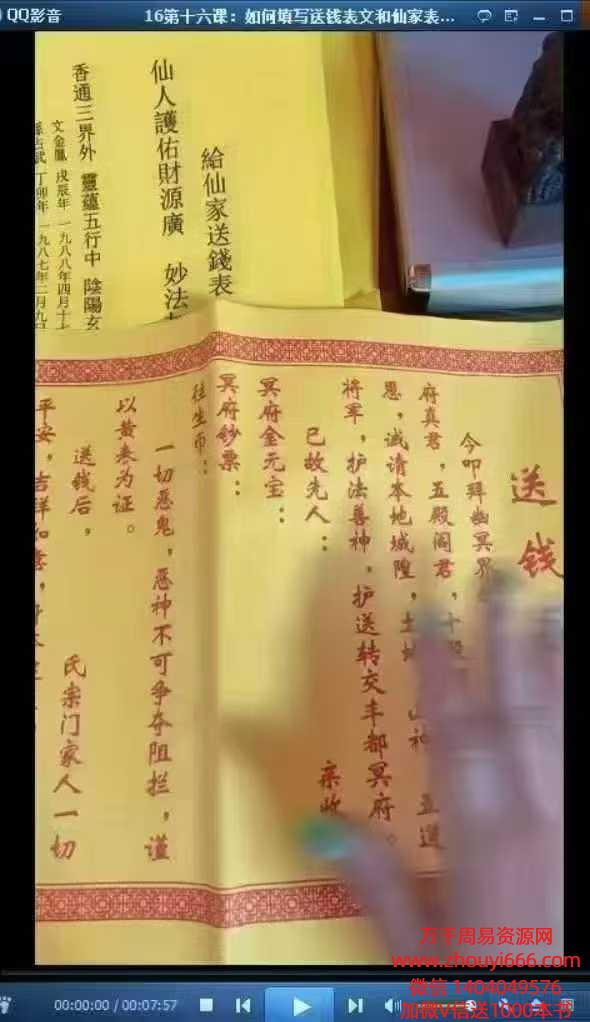 QQ影音
16第十六课：如何填写送钱表文和仙家表...
給仙家送錢表
仙人護佑財源廣 妙法
香通三界外 靈蘊五行中 陰陽玄
文金鳳 戊辰年 一九八八年四月十七
丁卯年 一九八七年二月九日
送钱
今叩拜幽冥界
府真君，五殿阎君，十殿
恩，诚请本地城隍，土地 山神 五道
将军，护法善神，护送转交丰都冥府。
已故先人： 亲收
冥府金元宝：
冥府钞票：
往生币：
一切恶鬼，恶神不可争夺阻拦，谨
以黄表为证。
送钱后， 氏宗门家人一切
平安，吉祥如意，
万千周易资源网
www.zhouyi666.com
微信 1404049576
加微V信送1000本书
00:00:00 / 00:07:57